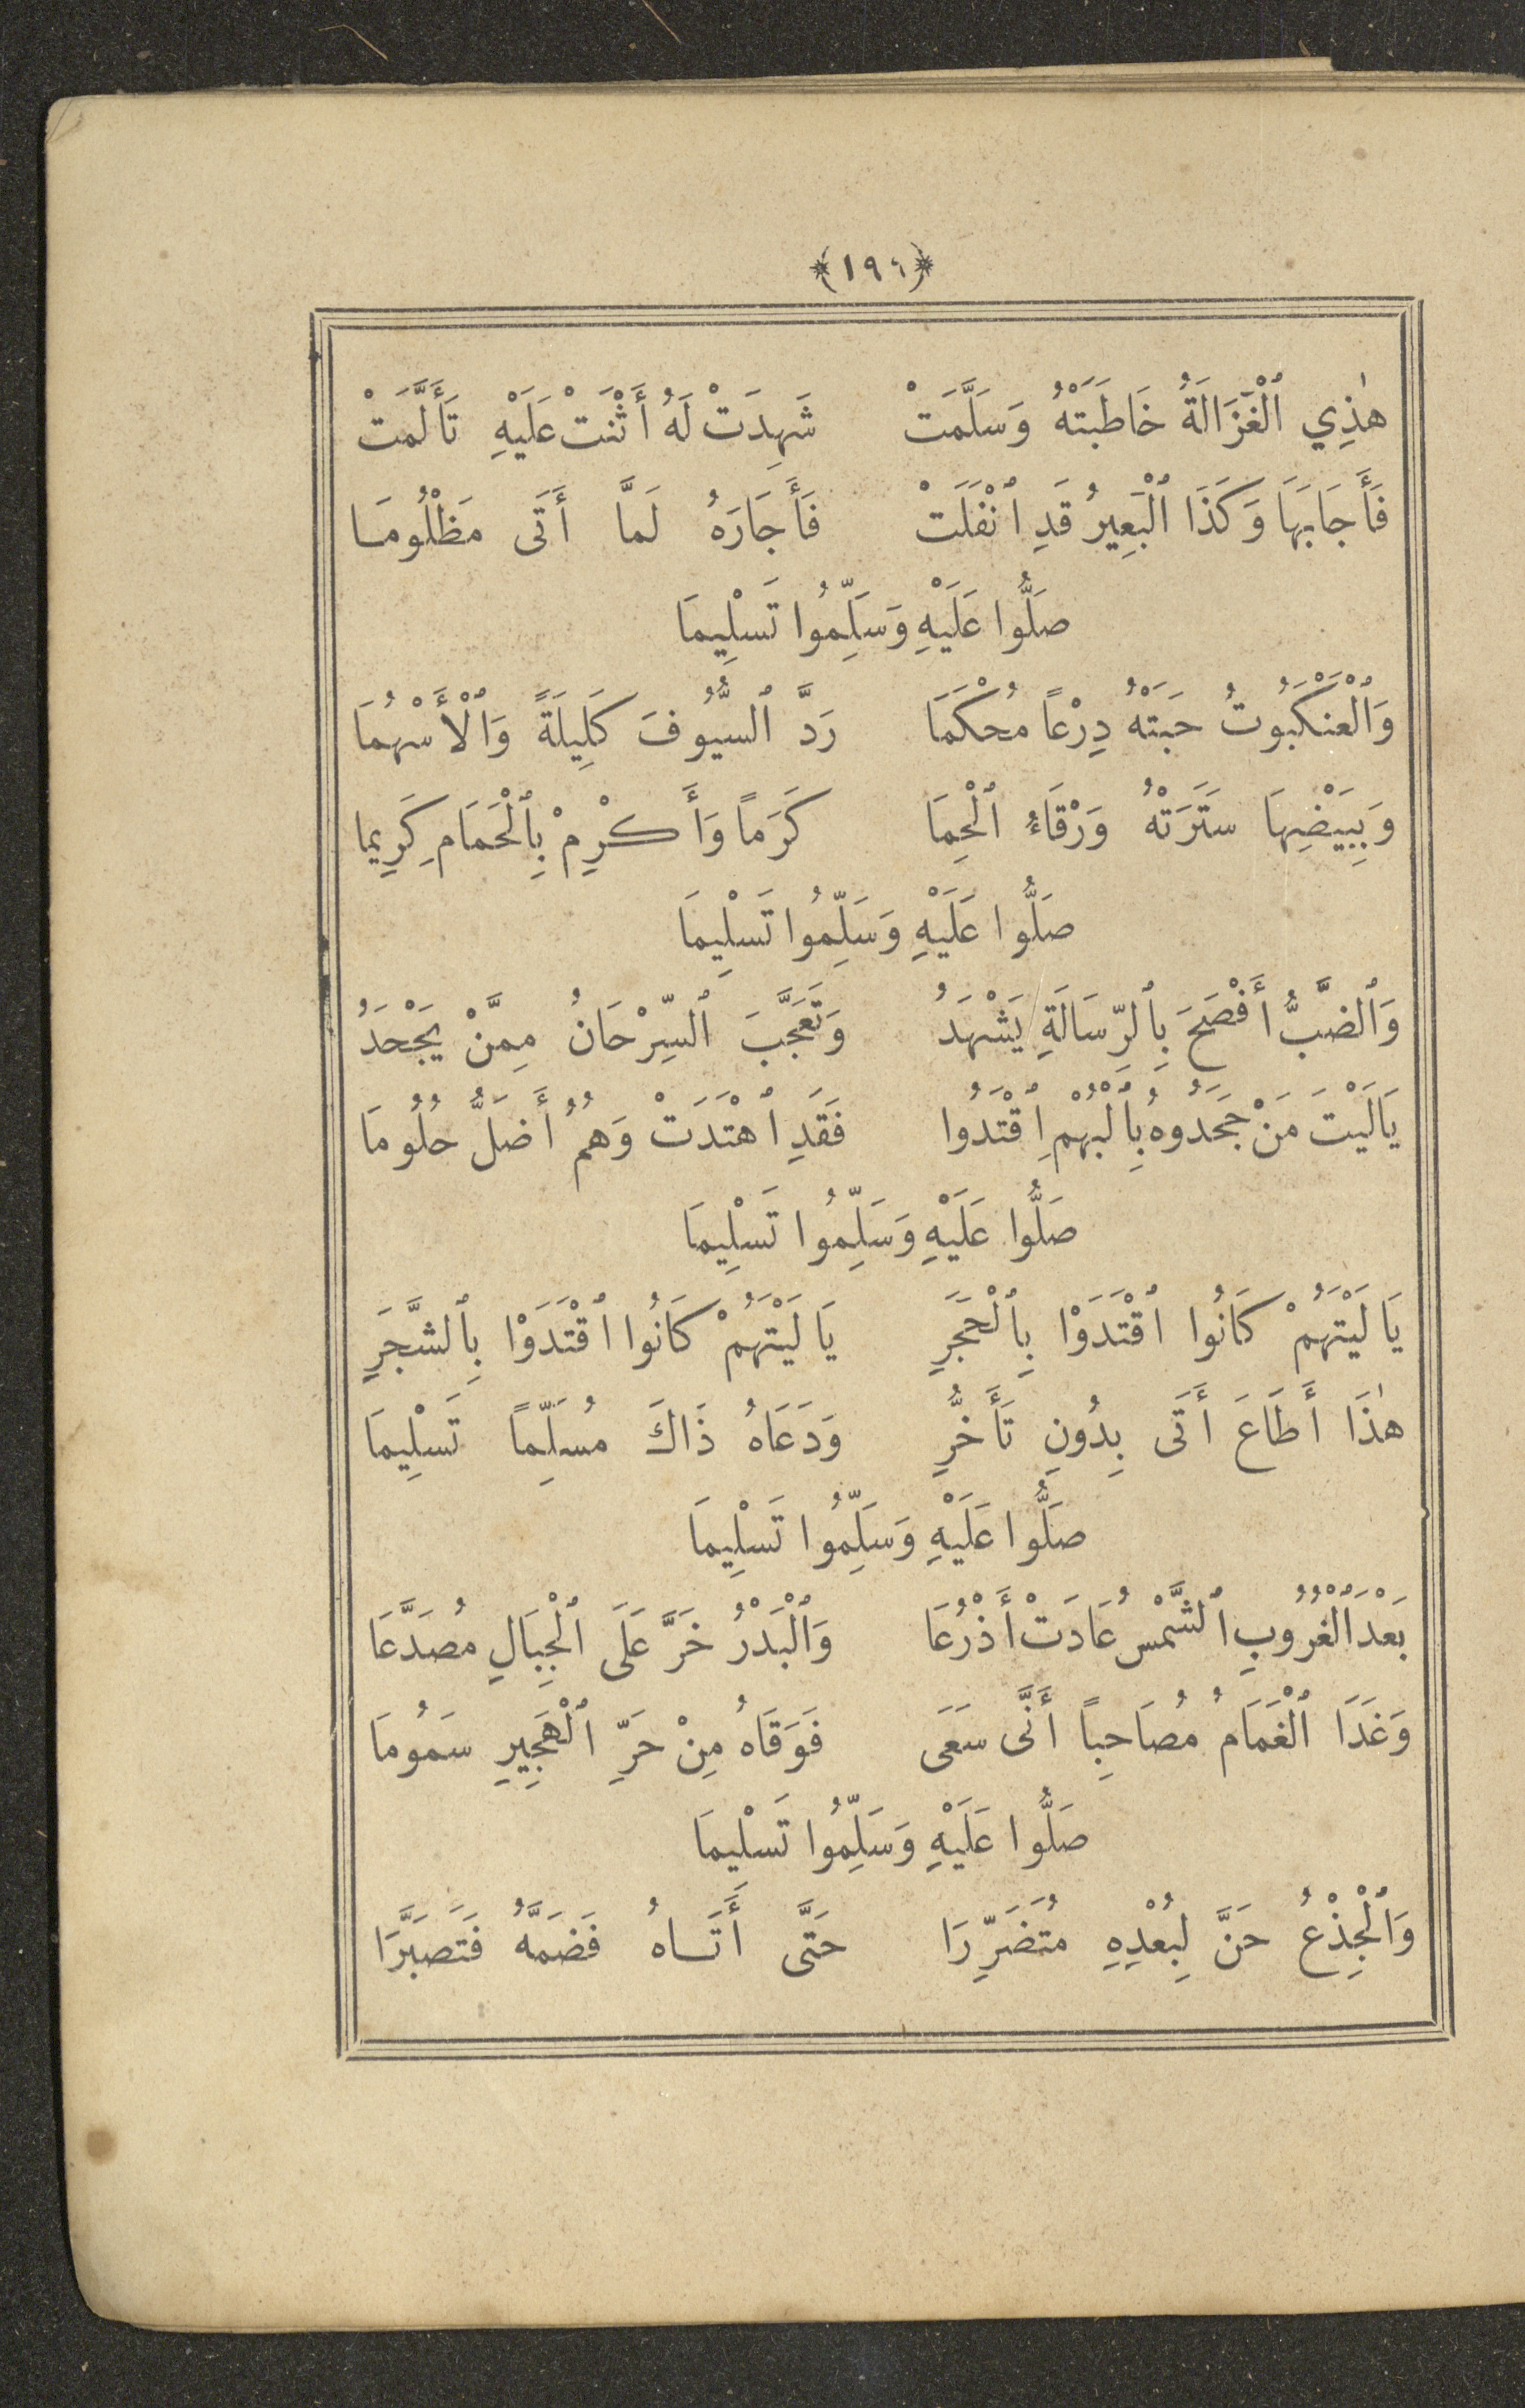 ﴿١٩٦﴾
هٰذِي ٱلْغَزَالَةُ خَاطَبَتْهُ وَسَلَّمَتْ شَهِدَتْ لَهُ أَثْنَتْ عَلَيْهِ تَأَلَّمَتْ
فَأَجَابَهَا وَكَذَا ٱلْبَعِيرُ قَدِ ٱنْفَلَتْ فَأَجَارَهُ لَمَّا أَتَى مَظْلُومَا
صَلُّوا عَلَيْهِ وَسَلِّمُوا تَسْلِيمَا
وَٱلْعَنْكَبُوتُ حَبَتْهُ دِرْعاً مُحْكَمَا رَدَّ ٱلسُّيُوفَ كَلِيلَةً وَٱلْأَسْهُمَا
وَبِبَيْضِهَا سَتَرَتْهُ وَرْقَاءُ ٱلْحِمَا كَرَماً وَأَكْرِمْ بِٱلْحَمَامِ كَرِيما
صَلُّوا عَلَيْهِ وَسَلِّمُوا تَسْلِيمَا
وَٱلضَّبُّ أَفْصَحَ بِٱلرِّسَالَةِ يَشْهَدُ وَتَعَجَّبَ ٱلسِّرْحَانُ مِمَّنْ يَجْحَدُ
يَالَيْتَ مَنْ جَحَدُوهُ بِٱلْبُهْمِ ٱقْتَدُوا فَقَدِ ٱهْتَدَتْ وَهُمُ أَضَلُّ حُلُومَا
صَلُّوا عَلَيْهِ وَسَلِّمُوا تَسْلِيمَا
يَا لَيْتَهُمْ كَانُوا ٱقْتَدَوْا بِٱلْحَجَرِ يَا لَيْتَهُمْ كَانُوا ٱقْتَدَوْا بِٱلشَّجَرِ
هٰذَا أَطَاعَ أَتَى بِدُونِ تَأَخُّرِ وَدَعَاهُ ذَاكَ مُسَلِّماً تَسْلِيمَا
صَلُّوا عَلَيْهِ وَسَلِّمُوا تَسْلِيمَا
بَعْدَ ٱلْغُرُوبِ ٱلشَّمْسُ عَادَتْ أَذْرُعَا وَٱلْبَدْرُ خَرَّ عَلَى ٱلْجِبَالِ مُصَدَّعَا
وَغَدَا ٱلْغَمَامُ مُصَاحِباً أَنَّى سَعَى فَوَقَاهُ مِنْ حَرِّ ٱلْهَجِيرِ سَمُومَا
صَلُّوا عَلَيْهِ وَسَلِّمُوا تَسْلِيمَا
وَٱلْجِذْعُ حَنَّ لِبُعْدِهِ مُتَضَرِّرَا حَتَّى أَتَاهُ فَضَمَّهُ فَتَصَبَّرَا